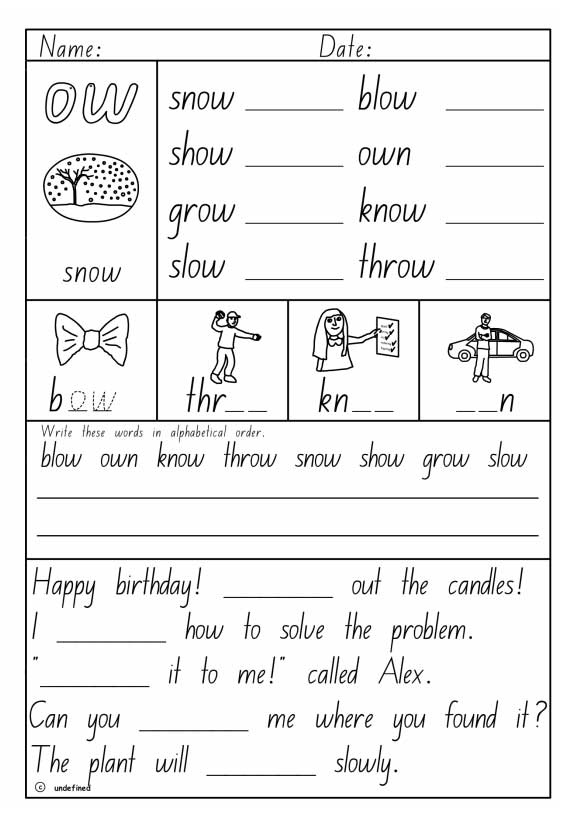 Name: Date:
ow
snow
snow ________ blow ________
show ________ own ________
grow ________ know ________
slow ________ throw ________
bow thr__ kn__ __n
Write these words in alphabetical order.
blow own know throw snow show grow slow
Happy birthday! ________ out the candles!
I ________ how to solve the problem.
"________ it to me!" called Alex.
Can you ________ me where you found it?
The plant will ________ slowly.
© undefined